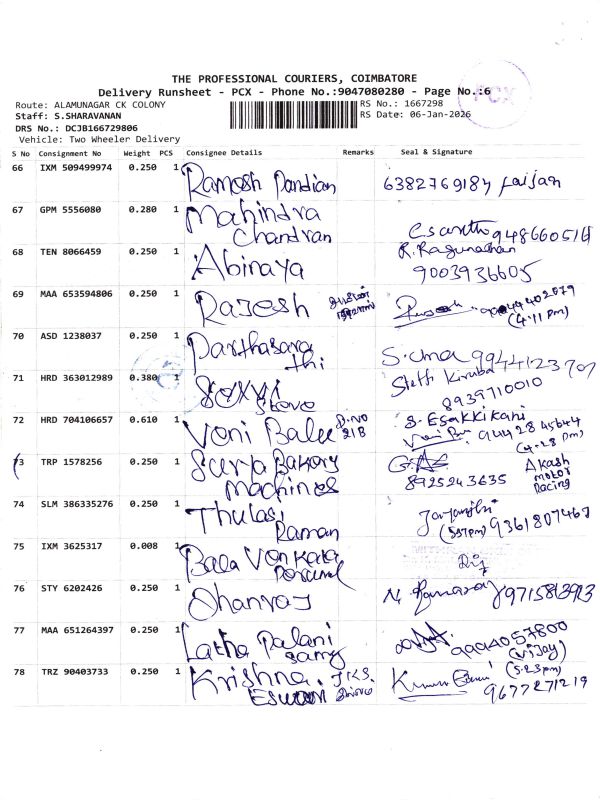 THE PROFESSIONAL COURIERS, COIMBATORE
Delivery Runsheet - PCX - Phone No.:9047080280 - Page No.:6
PCX
Route: ALAMUNAGAR CK COLONY
RS No.: 1667298
Staff: S.SHARAVANAN
RS Date: 06-Jan-2026
DRS No.: DCJB166729806
Vehicle: Two Wheeler Delivery
S No Consignment No Weight PCS Consignee Details Remarks Seal & Signature
66 IXM 509499974 0.250 1 Ramesh Pandian 6382769184 faijan
67 GPM 5556080 0.280 1 Mahindra
Chandran
68 TEN 8066459 0.250 1 Abinaya R. Ragunathan
9003936605
69 MAA 653594806 0.250 1 Rajesh
(4.11 pm)
70 ASD 1238037 0.250 1 Parthasara
thi
S.Uma
71 HRD 363012989 0.380 1
Stove
Steffi Kiruba
8939710010
72 HRD 704106657 0.610 1 Veni Balu D.NO
21B
S. Esakkikani
9442845644
(4-28 pm)
73 TRP 1578256 0.250 1 Surya Bakery
Machines
8925243635
Akash
Motor
Racing
74 SLM 386335276 0.250 1 Thulasi
Raman
(5.57pm) 9361807467
75 IXM 3625317 0.008 1 Bala Venkata
Perumal
76 STY 6202426 0.250 1 Dhanraj 9715813913
77 MAA 651264397 0.250 1 Latha Palani
samy
(Vijay)
78 TRZ 90403733 0.250 1 Krishna
Eswari
(5.23pm)
9677271219